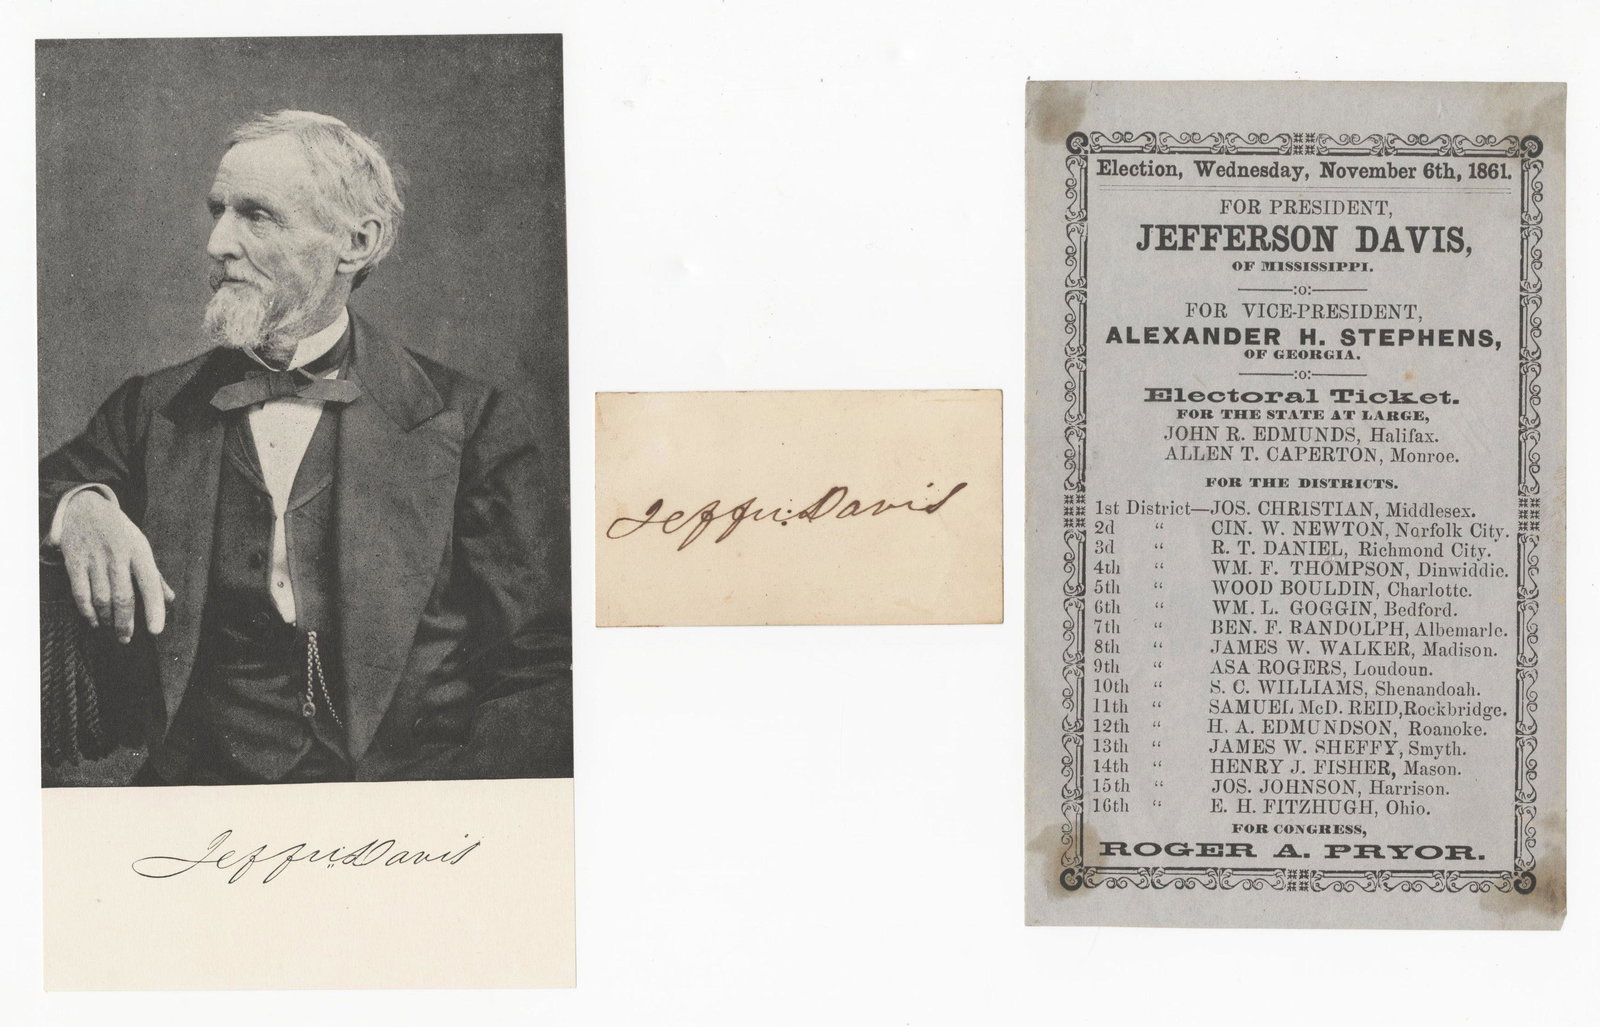 Jeffn: Davis
Jeffn: Davis
Election, Wednesday, November 6th, 1861.
FOR PRESIDENT,
JEFFERSON DAVIS,
OF MISSISSIPPI.
:o:
FOR VICE-PRESIDENT,
ALEXANDER H. STEPHENS,
OF GEORGIA.
:o:
Electoral Ticket.
FOR THE STATE AT LARGE,
JOHN R. EDMUNDS, Halifax.
ALLEN T. CAPERTON, Monroe.
FOR THE DISTRICTS.
1st District—JOS. CHRISTIAN, Middlesex.
2d “ CIN. W. NEWTON, Norfolk City.
3d “ R. T. DANIEL, Richmond City.
4th “ WM. F. THOMPSON, Dinwiddie.
5th “ WOOD BOULDIN, Charlotte.
6th “ WM. L. GOGGIN, Bedford.
7th “ BEN. F. RANDOLPH, Albemarle.
8th “ JAMES W. WALKER, Madison.
9th “ ASA ROGERS, Loudoun.
10th “ S. C. WILLIAMS, Shenandoah.
11th “ SAMUEL McD. REID, Rockbridge.
12th “ H. A. EDMUNDSON, Roanoke.
13th “ JAMES W. SHEFFY, Smyth.
14th “ HENRY J. FISHER, Mason.
15th “ JOS. JOHNSON, Harrison.
16th “ E. H. FITZHUGH, Ohio.
FOR CONGRESS,
ROGER A. PRYOR.